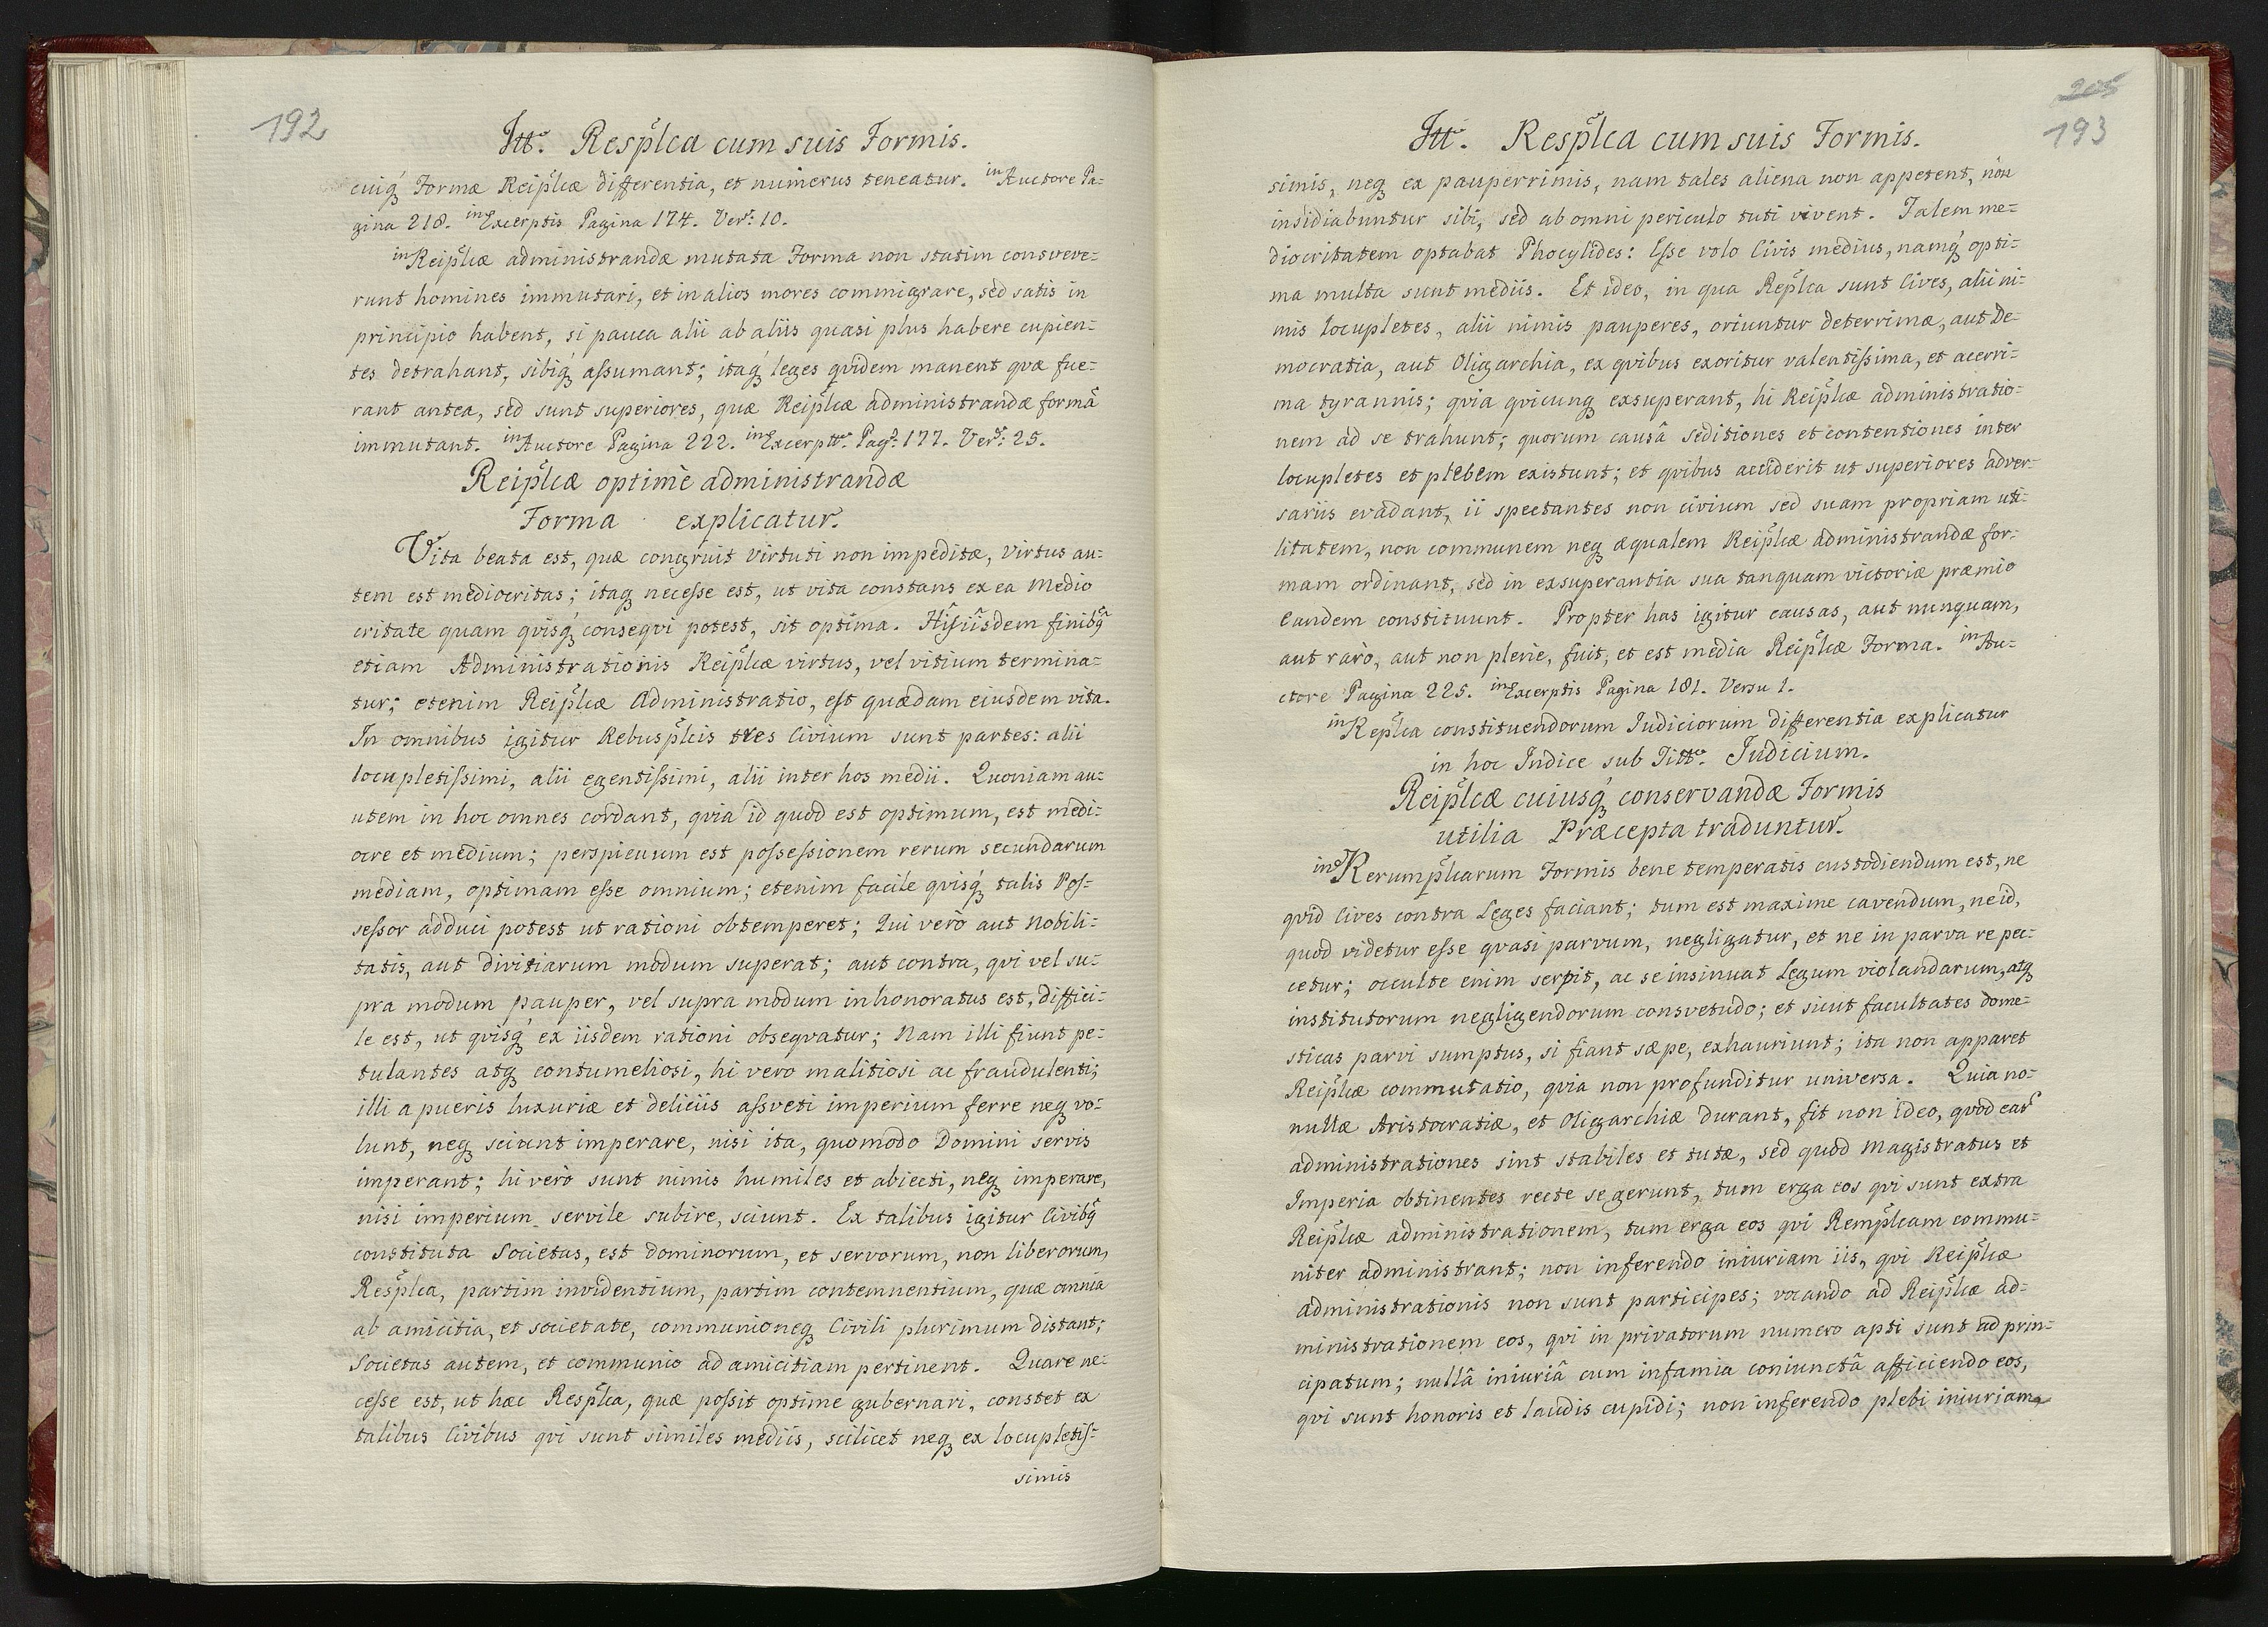 192
Ttt. Resplca cum suis Formis.
cuiq́ Formæ Reiplcæ differentia, et numerus teneatur. in Auctore Pa=
gina 218. in Excerptis Pagina 174. Ver: 10.
in Reiplcæ administrandæ mutata Forma non statim consveve=
runt homines immutari, et in alios mores commigrare, sed satis in
principio habent, si pauca alii ab aliis quasi plus habere cupien=
tes detrahant, sibiq́ assumant; itaq́ leges qvidem manent qvæ fue=
rant antea, sed sunt superiores, quæ Reiplcæ administrandæ formã
immutant. in Auctore Pagina 222. in Excerptt. Pag: 177. Ver: 25.
Reiplcæ optimè administrandæ
Forma explicatur.
Vita beata est, quæ congruit virtuti non impeditæ, virtus au=
tem est mediocritas; itaq necesse est, ut vita constans ex ea Medio
critate quam qvisq́ conseqvi potest, sit optima. His iisdem finibq
etiam Administrationis Reiplcæ virtus, vel vitium termina=
tur; etenim Reiplcæ Administratio, est quædam eiusdem vita.
In omnibus igitur Rebusplcis tres Civium sunt partes: alii
locupletissimi, alii egentissimi, alii inter hos medii. Quoniam au=
utem in hoc omnes cordant, qvia id quod est optimum, est medi=
ocre et medium; perspicuum est possessionem rerum secundarum
mediam, optimam esse omnium; etenim facile qvisq́ talis Pos=
sessor adduci potest ut rationi obtemperet; Qui verò aut Nobili=
tatis, aut divitiarum modum superat; aut contra, qvi vel su=
pra modum pauper, vel supra modum inhonoratus est, diffici=
le est, ut qvisq́ ex iisdem rationi obseqvatur; Nam illi fiunt pe=
tulantes atq contumeliosi, hi vero malitiosi ac fraudulenti;
illi a pueris luxuriæ et deliciis assveti imperium ferre neq vo=
lunt, neq sciunt imperare, nisi ita, quomodo Domini servis
imperant; hi verò sunt nimis humiles et abiecti, neq imperare,
nisi imperium servile subire, sciunt. Ex talibus igitur Civibq
constituta Societas, est dominorum, et servorum, non liberorum,
Resplca, partim invidentium, partim contemnentium, quæ omnia
ab amicitia, et societate, communioneq Civili plurimum distant;
Societas autem, et communio ad amicitiam pertinent. Quare ne=
cesse est, ut hæc Resplca, quæ possit optime gubernari, constet ex
talibus Civibus qvi sunt similes mediis, scilicet neq ex locupletis=
simis
205
193
Ttt. Resplca cum suis Formis.
simis, neq ex pauperrimis, nam tales aliena non appetent, nõn
insidiabuntur sibi, sed ab omni periculo tuti vivent. Talem me=
diocritatem optabat Phocylides: Esse volo Civis medius, namq́ opti=
ma multa sunt mediis. Et ideo, in qua Replca sunt Cives, alii ni=
mis locupletes, alii nimis pauperes, oriuntur deterrimæ, aut De=
mocratia, aut Oligarchia, ex qvibus exoritur valentissima, et acerri=
ma tyrannis; qvia qvicunq exsuperant, hi Reiplcæ administratio=
nem ad se trahunt; quorum causâ seditiones et contentiones inter
locupletes et plebem existunt; et qvibus acciderit ut superiores adver=
sariis evadant, ii spectantes non civium sed suam propriam uti=
litatem, non communem neq æqualem Reiplcæ administrandæ for=
mam ordinant, sed in exsuperantia sua tanquam victoriæ præmio
eandem constituunt. Propter has igitur causas, aut nunquam,
aut rarò, aut non plene, fuit, et est media Reiplcæ Forma. in Au=
ctore Pagina 225. in Excerptis Pagina 181. Versu 1.
in Replca constituendorum Iudiciorum differentia explicatur
in hoc Indice sub Titt. Iudicium.
Reiplcæ cuiusq́ conservandæ Formis
utilia Præcepta traduntur.
in Rerumplcarum Formis bene temperatis custodiendum est, ne
qvid Cives contra Leges faciant; tum est maxime cavendum, ne id,
quod videtur esse qvasi parvum, negligatur, et ne in parva re pec=
cetur; occulte enim serpit, ac se insinuat Legum violandarum, atq
institutorum negligendorum consvetudo; et sicut facultates dome=
sticas parvi sumptus, si fiant sæpe, exhauriunt; ita non apparet
Reiplcæ commutatio, qvia non profunditur universa. Quia no=
nullæ Aristocratiæ, et Oligarchiæ durant, fit non ideo, qvod eæ
administrationes sint stabiles et tutæ, sed quod Magistratus et
Imperia obtinentes recte se gerunt, tum erga eos qvi sunt extra
Reiplcæ administrationem, tum erga eos qvi Remplcam commu=
niter administrant; non inferendo iniuriam iis, qvi Reiplcæ
administrationis non sunt participes; vocando ad Reiplcæ ad=
ministrationem eos, qvi in privatorum numero apti sunt ad prin=
cipatum; nullâ iniuriâ cum infamia coniunctâ afficiendo eos,
qvi sunt honoris et laudis cupidi; non inferendo plebi iniuriam